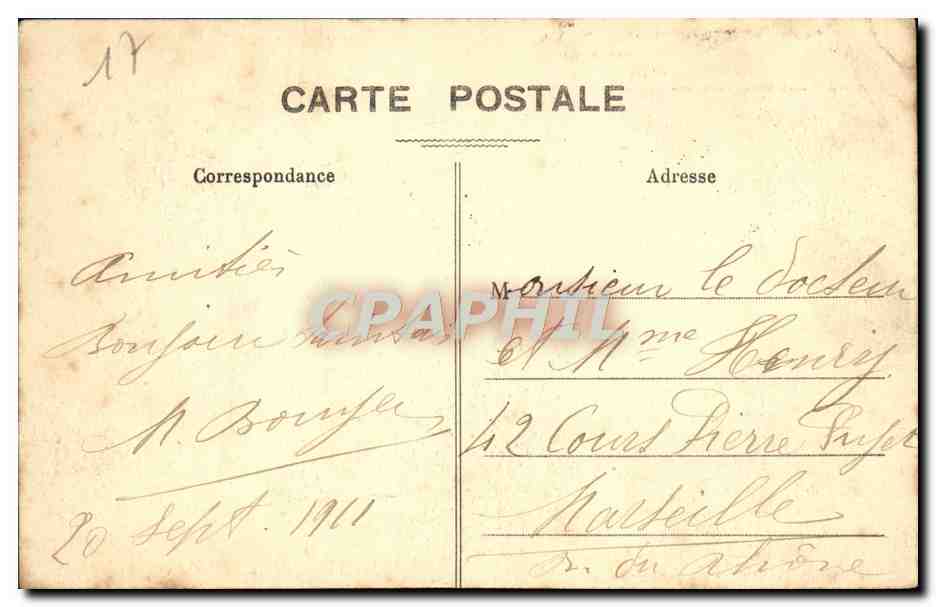 17
CARTE POSTALE
Correspondance
Adresse
Amitiés
Bonjour
M.
20 Sept. 1911
Monsieur le Docteur
et Mme Henry
42 Cours Pierre Puget
Marseille
B. du Rhône
CPAPHIL